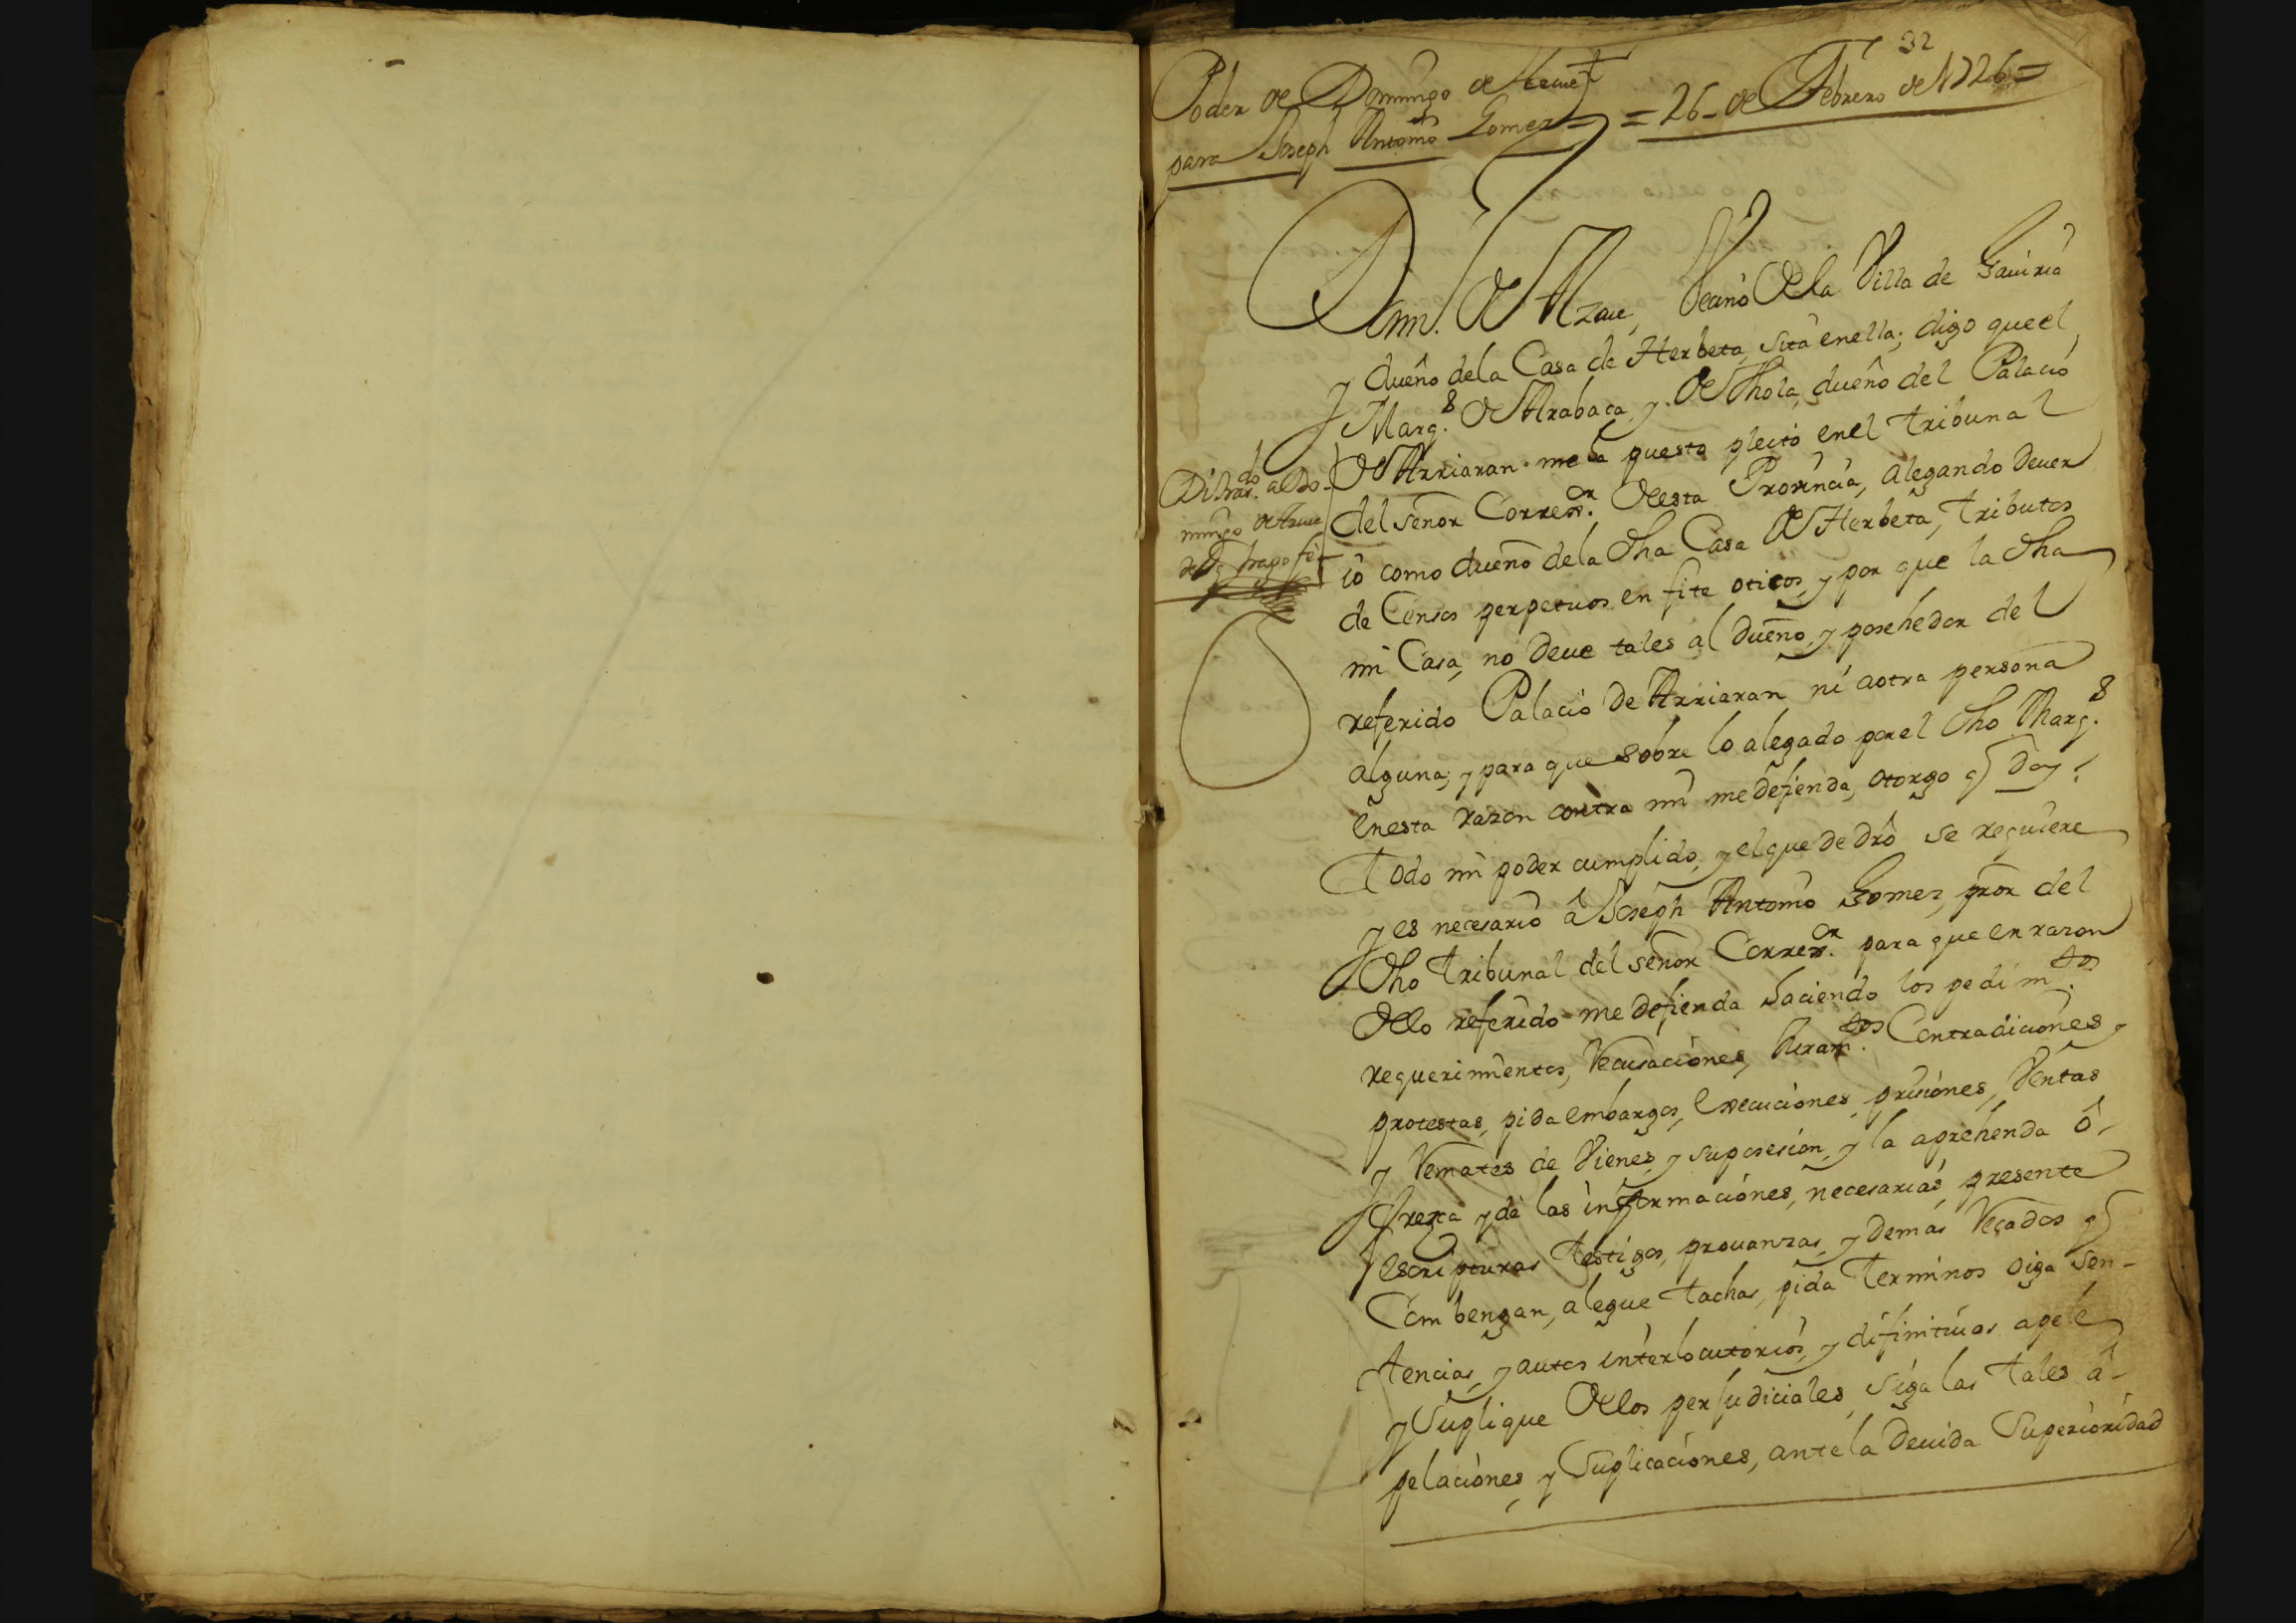 32
Poder de Domingo de Azcue
para Joseph Antonio Gomez = = 26 - de Febrero de 1726 =
Dom.º de Azcue, Vecino de la Villa de Gaviria
y dueño dela Casa de Herbeta, sita enella; digo que el
Marq.s de Arabaca, y de Thola, dueño del Palacio
de Arriaran me a puesto pleito enel tribunal
del señor Correxor. desta Provincia, alegando dever
io como dueño dela dha Casa de Herbeta, tributos
de Censos perpetuos en fite oticos, y por que la dha
mi Casa, no deve tales al dueño, y posehedor del
referido Palacio de Arriaran ni aotra persona
alguna; y para que sobre lo alegado por el dho Marq.s
enesta razon contra mi me defienda, otorgo q doy
todo mi poder cumplido, y el que de dro se requiere
y es necesario â Joseph Antonio Gomez, pror del
dho tribunal del señor Correxor. para que en razon
delo referido me defienda haciendo los pedim.tos
requerimientos, Recusaciones, Juram.tos Contradiciones y
protestas, pida embargos, execuciones, prisiones, Ventas
y Remates de Vienes, y suposesion, y la aprehenda ô,
frezca y dè las informaciones, necesarias, presente
escripturas testigos, provanzas, y demás Recados q
Combengan, alegue tachas, pida terminos oiga sen-
tencias, y autos interlocutorios, y difinitivos apele
y Suplique delos perjudiciales, siga las tales â-
pelaciones, y Suplicaciones, ante la devida Superioridad
Di tras.do a Do-
mingo de Azcue
dello hago fè